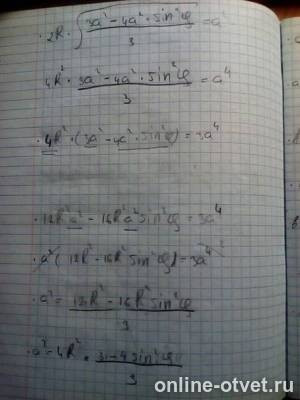 · 2R · √(3a² - 4a² · sin²φ / 3) = a²
4R² · (3a² - 4a² · sin²φ) / 3 = a⁴
· 4R² · (3a² - 4a² · sin²φ) = 3a⁴
· 12R²a² - 16R²a² sin²φ = 3a⁴
· a² (12R² - 16R² sin²φ) = 3a⁴
· a² = (12R² - 16R² sin²φ) / 3
· a² = 4R² · (3 - 4 sin²φ) / 3
online-otvet.ru